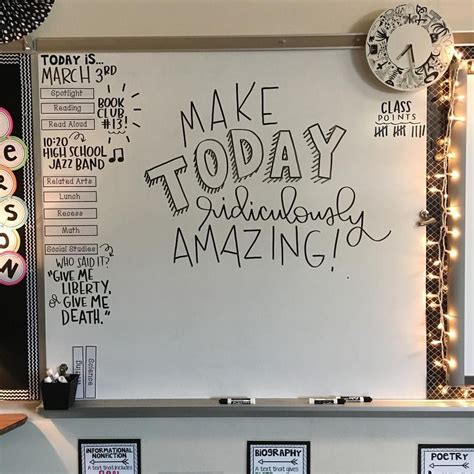 TODAY IS...
MARCH 3RD
Spotlight
Reading
Read Aloud
BOOK
CLUB
#13!
10:20
HIGH SCHOOL
JAZZ BAND
Related Arts
Lunch
Recess
Math
Social Studies
WHO SAID IT?
"GIVE ME
LIBERTY,
or GIVE ME
DEATH."
Writing
Science
MAKE
TODAY
ridiculously
AMAZING!
CLASS
POINTS
INFORMATIONAL
NONFICTION
A text that includes
BIOGRAPHY
A text that tells the
POETRY